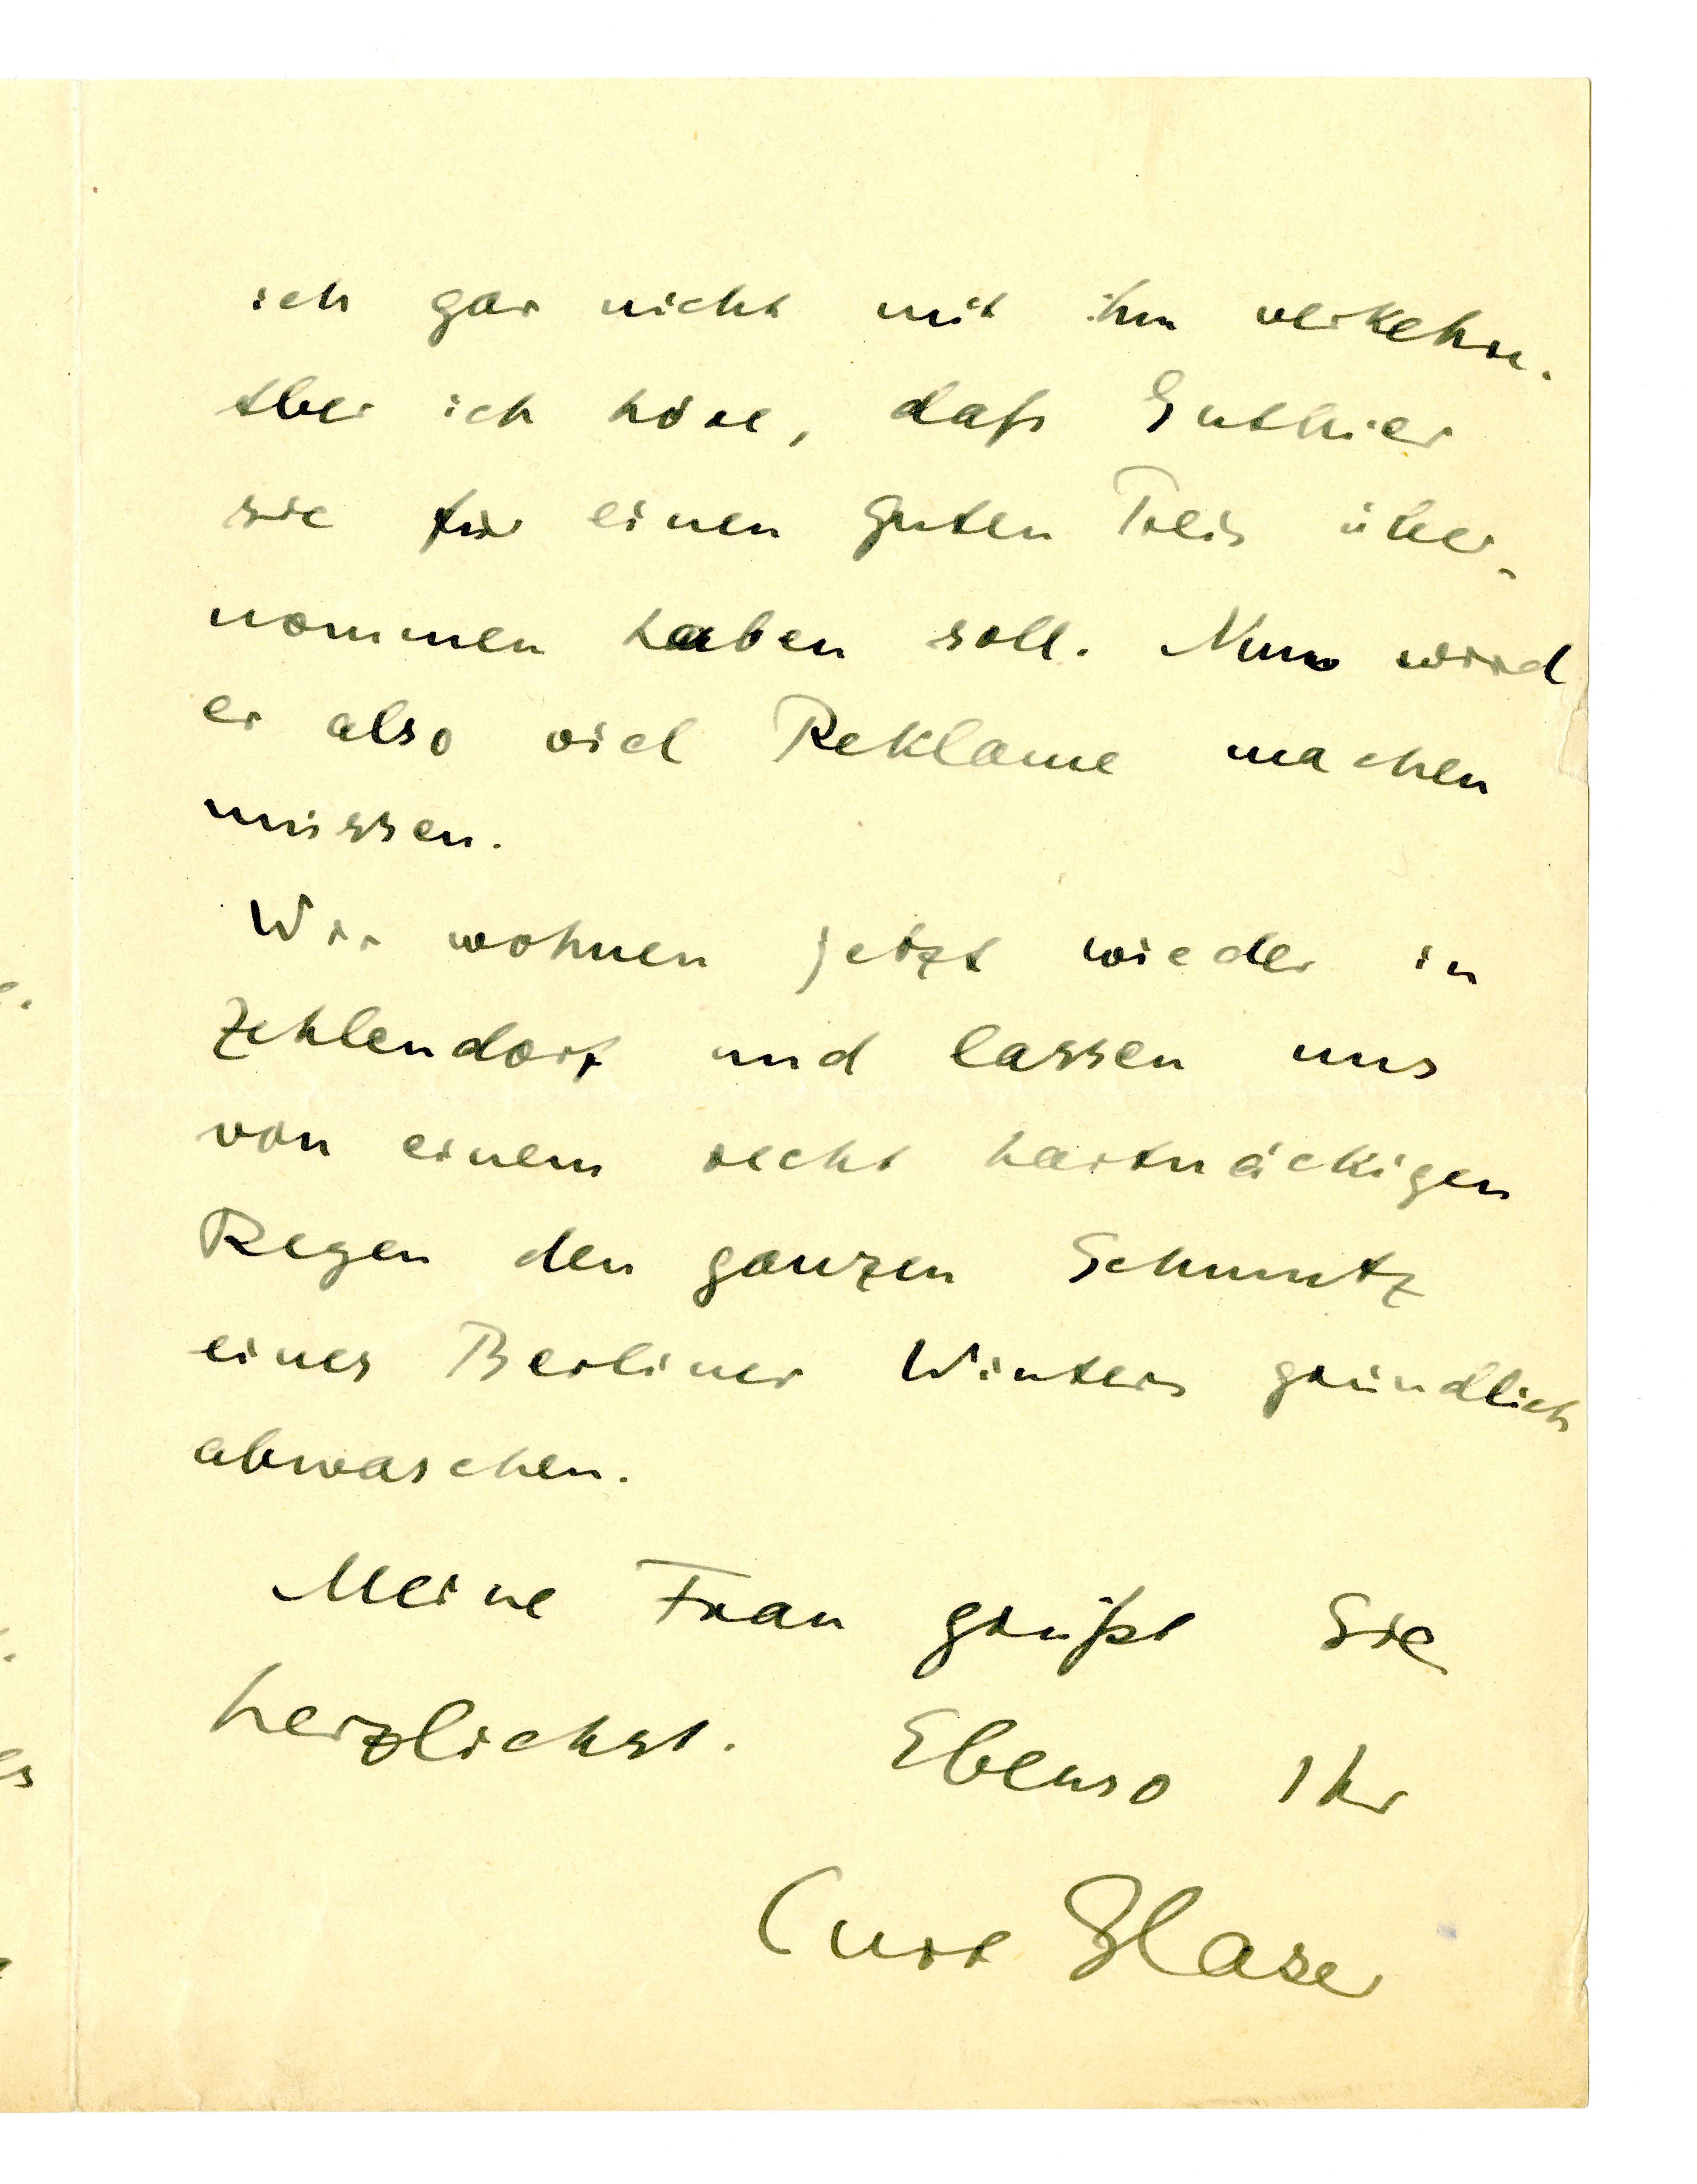 ich gar nicht mit ihm verkehre.
Aber ich höre, daß Guthier
sie für einen guten Preis über-
nommen haben soll. Nun wird
er also viel Reklame machen
müssen.
Wir wohnen jetzt wieder in
Zehlendorf und lassen uns
von einem recht hartnäckigen
Regen den ganzen Schmutz
eines Berliner Winters gründlich
abwaschen.
Meine Frau grüßt Sie
herzlichst. Ebenso Ihr
Curt Glaser